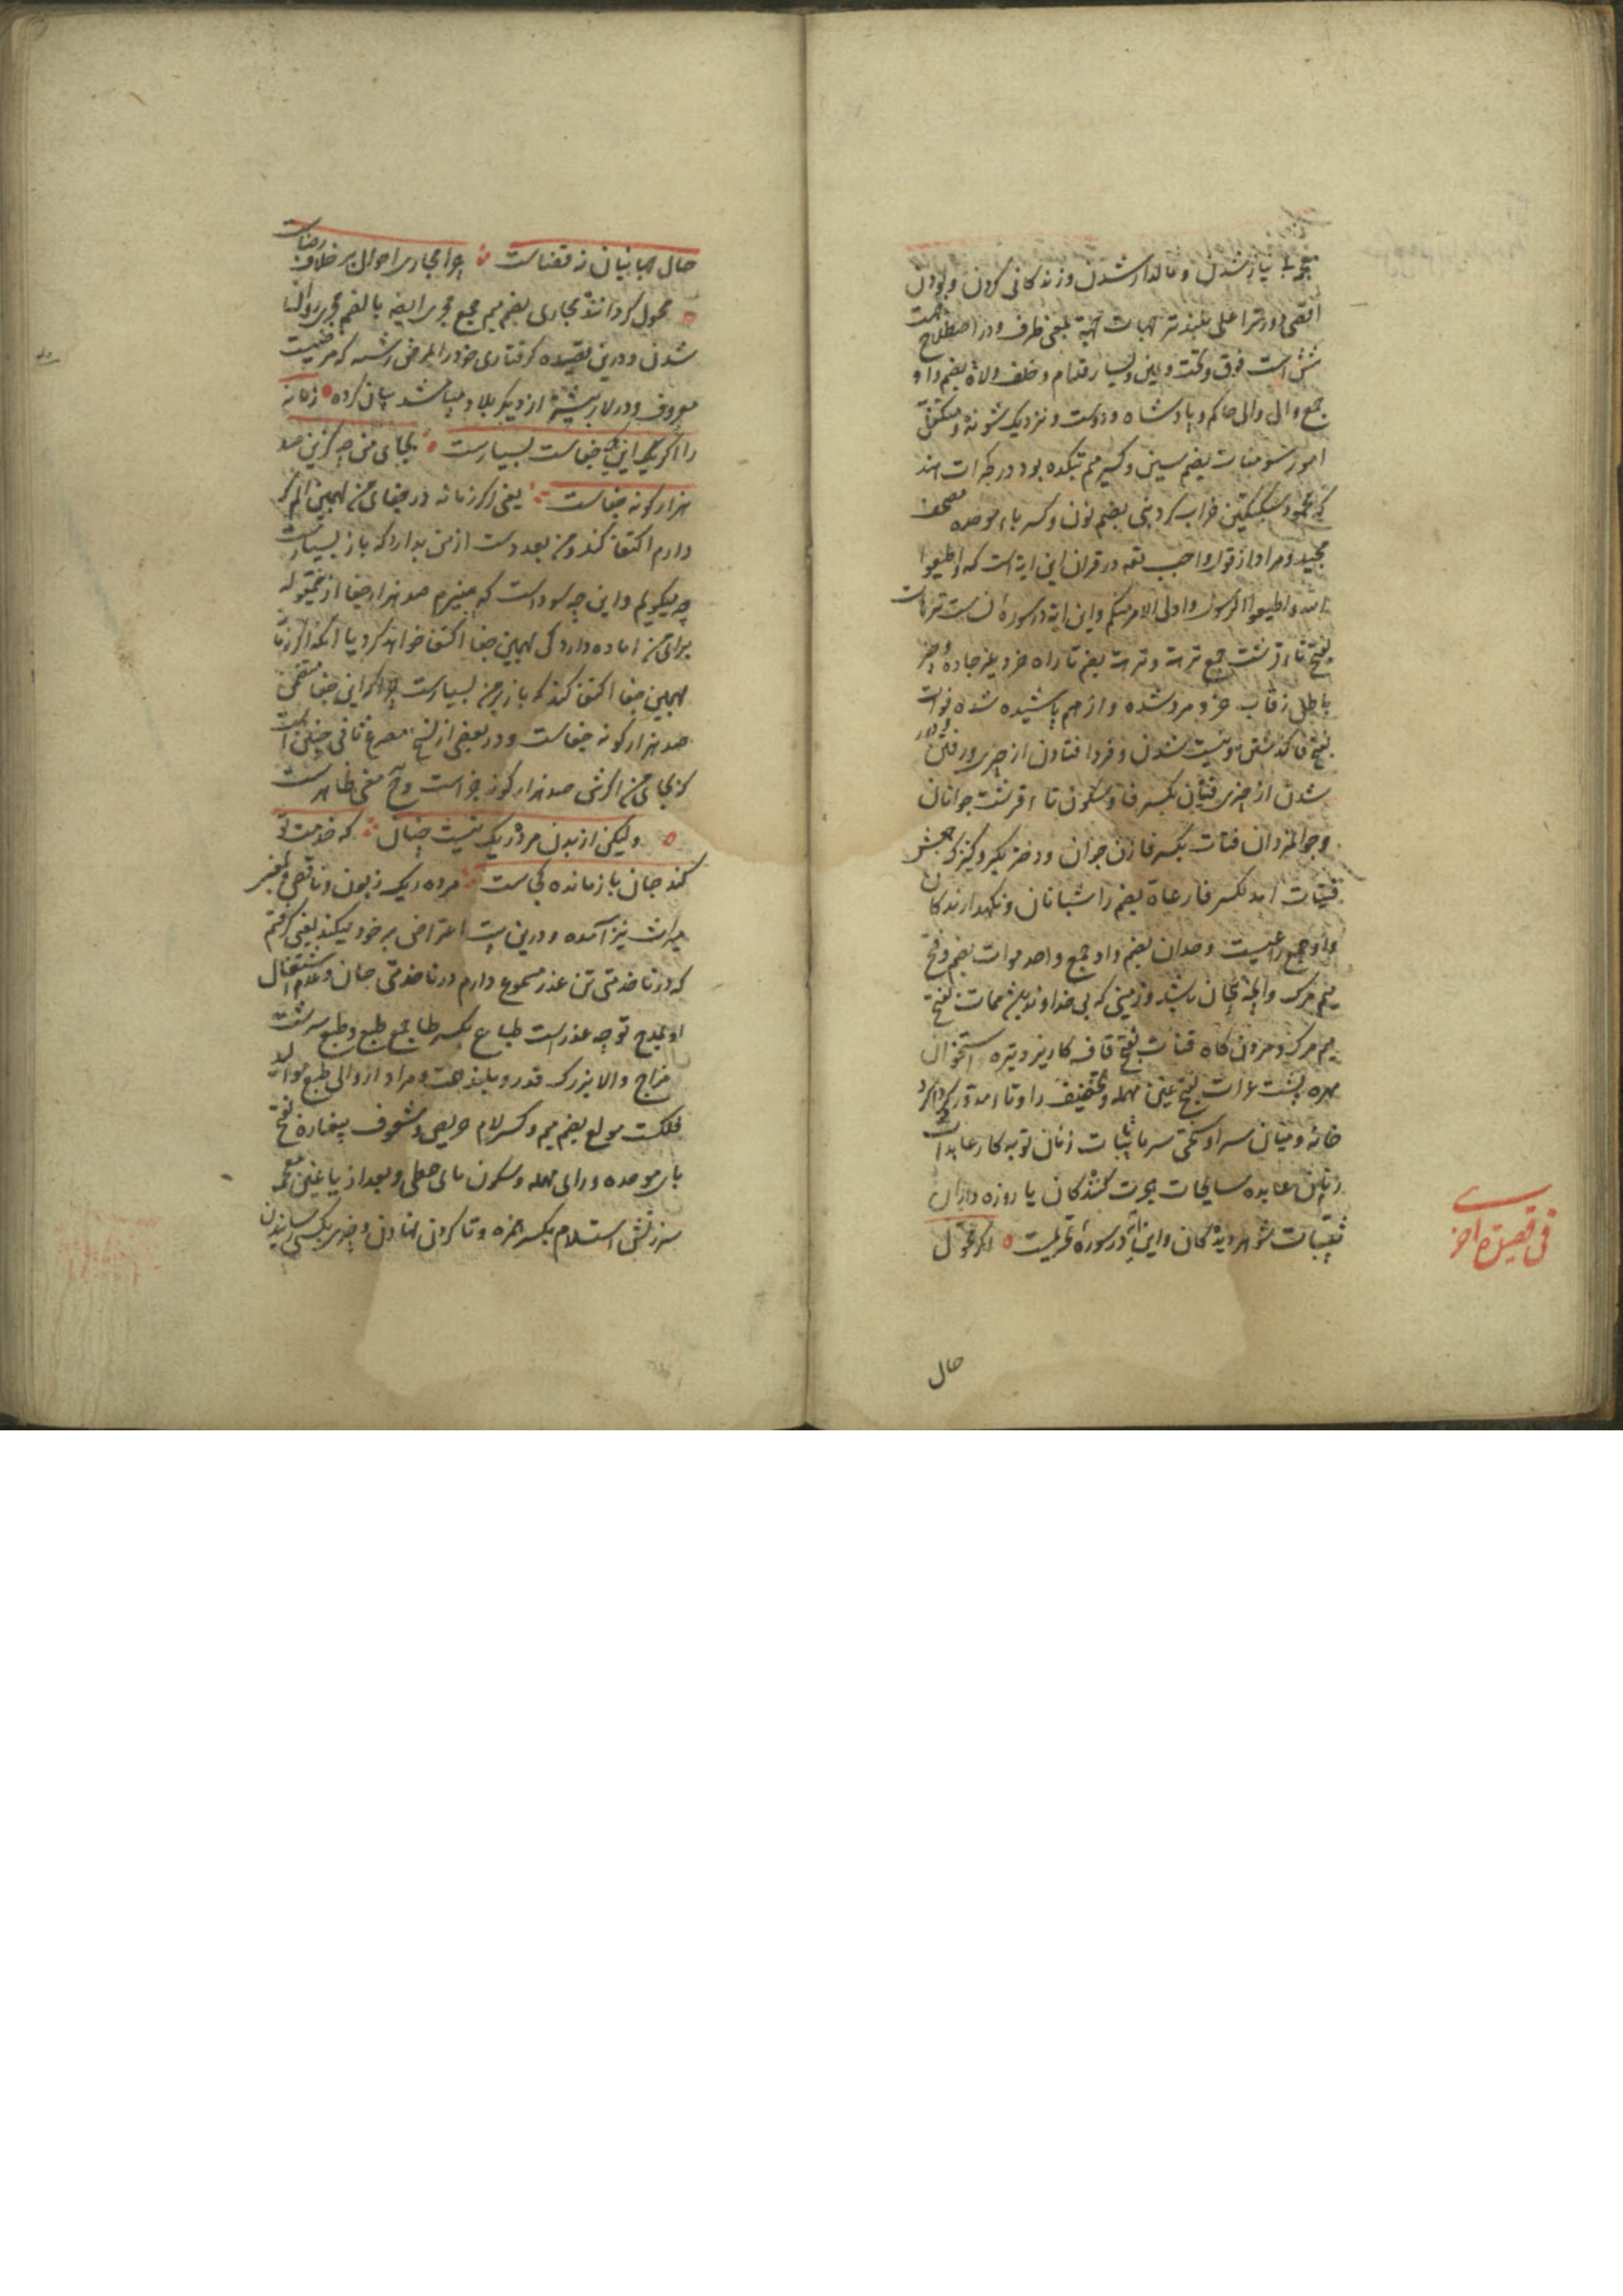 بی نیاز شدن و مالدار شدن و زندگانی کردن و بودن
اقصی دورتر اعلی بلندتر جهات جهة بمعنی طرف و در اصطلاح جهت
شش است فوق و تحت و یمین و یسار و قدام و خلف ولاة بضم واو
جمع والی والی حاکم و پادشاه و دوست و نزدیک شونده و متکفل
امور سومنات بضم سین و کسر میم بتکده بود در کجرات هند
که محمود سبکتکین خراب کرد نبی بضم نون و کسر باء موحده مصحف
مجید و مراد از قول واجب تعه در قران این ایه است که و اطیعوا
الله و اطیعوا الرسول و اولی الامر منکم و این ایه در سوره نساست ترهات
بفتح تاء قرشت جمع ترهة و ترهة بضم تا راه خرد بغیر جاده و چیز
باطل رفات خرد و مرد شده و از هم پاشیده شده فوات
بفتح فا گذشتن و نیست شدن و فرو افتادن از چیزی و رفتن و دور
شدن از چیزی فتیان بکسر فا و سکون تاء قرشت جوانان
و جوانمردان فتات بکسر فا زن جوان و دختر بکر و کنیزک جمعش
فتیات امد بکسر فا رعاة بضم را شبانان و نگهدارندگان
واو جمع راعیست وحدان بضم واو جمع واحد موات بضم و فتح
میم مرگ و انچه بیجان باشد و زمینی که بی خداوند باشد ممات بفتح
میم مرگ و مردن گاه قنات بفتح قاف کاریز و نیزه و استخوان
مهره پشت عرات بفتح عین مهمله و تخفیف را و تاء مدور گرداگرد
خانه و میان سرا و سختی سرما تایبات زنان توبه کار عابدات
زنان عابده سایحات هجرت کنندگان یا روزه داران
ثیبات شوهر دیده گان و این آیه در سوره تحریمست اگر محول
فی قصیدة اخری
حال
حال جهانیان نه قضاست چرا مجاری احوال بر خلاف رضاست
محول گرداننده مجاری بضم میم جمع مجری ایضه بالضم مجری روان
شدن و درین قصیده گرفتاری خود را بمرض رشته که مرضیست
معروف و در لار بیشتر از دیگر بلاد میباشد بیان کرده زمانه
را اگر یک این جفاست بسیارست بجای من چه گزین صد
هزار گونه جفاست یعنی اگر زمانه در جفای من بهمین الم که
دارم اکتفا کند و من بعد دست از من بدارد که باز بسیارست
چه میگویم و این چه سوداست که میپزم صد هزار جفا ازینمقوله
برای من اماده دارد کی بهمین جفا اکتفا خواهد کرد یا انکه اگر زمانه
بهمین جفا اکتفا کند که باز بر من بسیارست چرا که این جفا متضمن
صد هزار گونه جفاست و در بعضی از نسخ مصرع ثانی چنین است
که بجای من اگرش صد هزار گونه جزاست و ح معنی ظاهرست
ولیکن از بدن مرده ریک نیست خیال که خدمت تو
کند جان بازمانده کجاست مرده ریک زبون و ناقص و بمعنی
میراث نیز آمده و درین بیت اعتراض بر خود میکند یعنی گرفتم
که در ناخدمتی تن عذر مسموع دارم در ناخدمتی جان و عدم اشتغال
او بمدح تو چه عذرست طباع بکسر طا جمع طبع و طبع سرشت
مزاج والا بزرگ قدر و بلند همت و مراد از والی طبع موالید
فلکست مولع بضم میم و کسر لام حریص و مشعوف بیغاره بفتح
باء موحده و رای مهمله و سکون های حطی و بعد از یا غین معجمه
سرزنش استلام بکسر همزه و تا گردن نهادن و چیزی بکسی رسانیدن